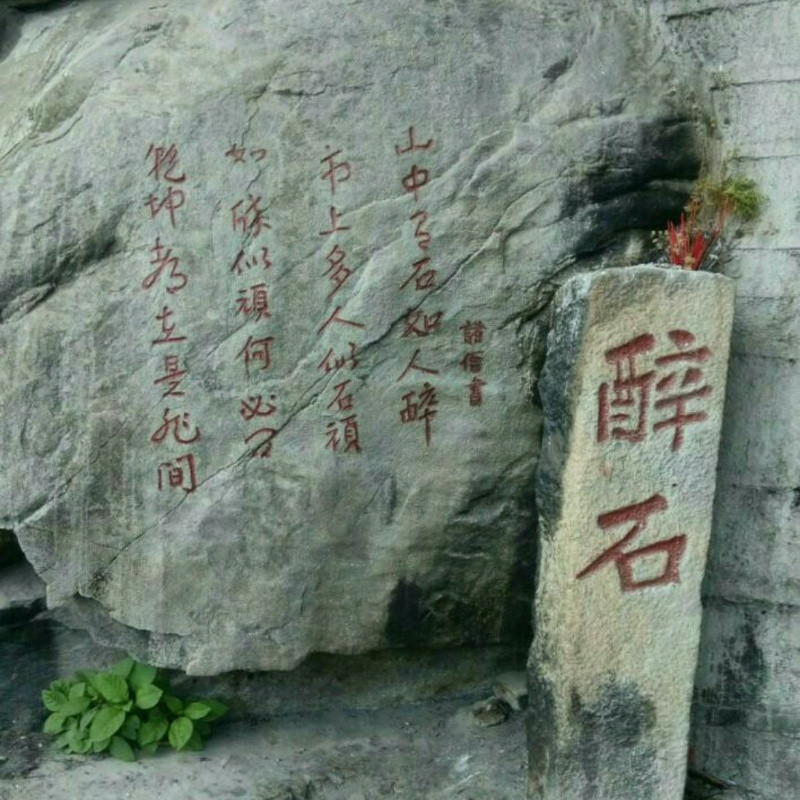 醉石
山中有石如人醉
市上多人似石頑
如醉似頑何必問
乾坤都在是非間